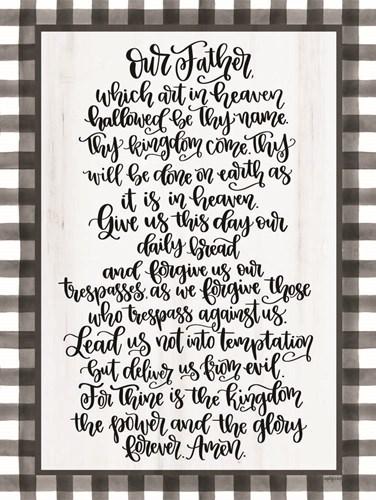 Our Father,
which art in heaven
hallowed be Thy name.
Thy kingdom come. Thy
will be done on earth as
it is in heaven.
Give us this day our
daily bread
and forgive us our
trespasses, as we forgive those
who trespass against us.
Lead us not into temptation
but deliver us from evil.
For Thine is the kingdom
the power and the glory
forever. Amen.